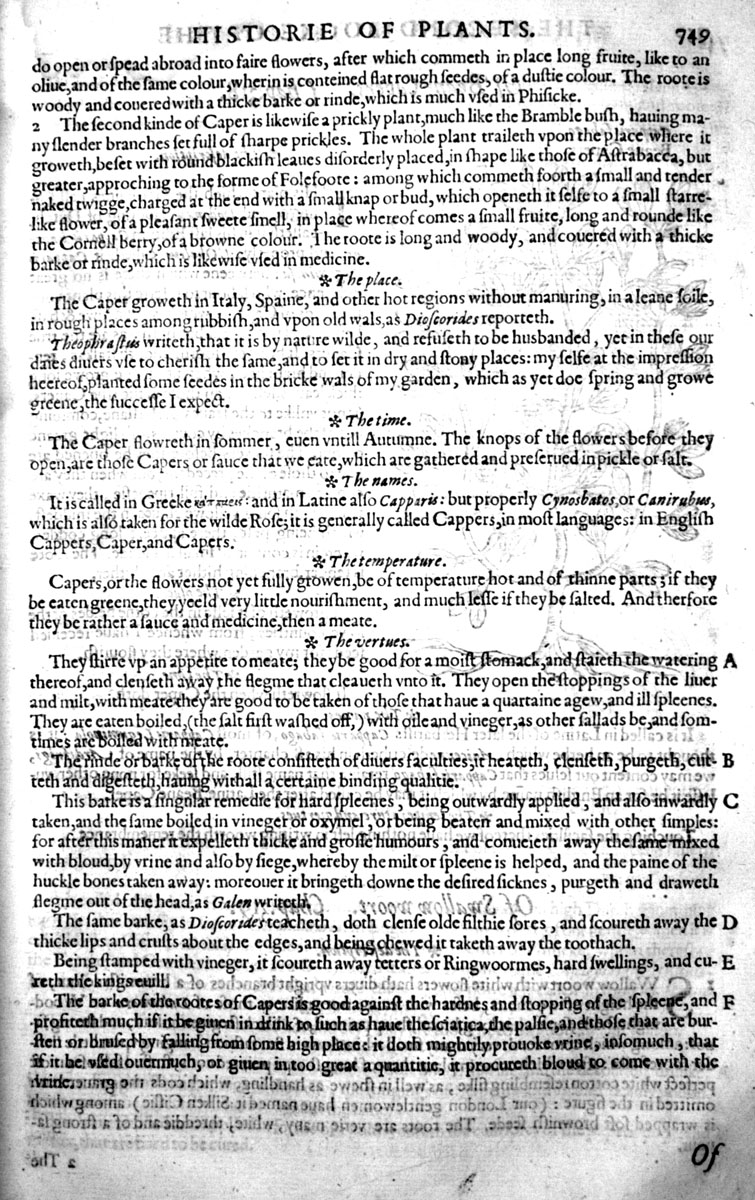 HISTORIE OF PLANTS. 749
do open or spead abroad into faire flowers, after which commeth in place long fruite, like to an
oliue, and of the same colour, wherin is conteined flat rough seedes, of a dustie colour. The roote is
woody and couered with a thicke barke or rinde, which is much vsed in Phisicke.
2 The second kinde of Caper is likewise a prickly plant, much like the Bramble bush, hauing ma-
ny slender branches set full of sharpe prickles. The whole plant traileth vpon the place where it
groweth, beset with round blackish leaues disorderly placed, in shape like those of Astrabacca, but
greater, approching to the forme of Folefoote: among which commeth foorth a small and tender
naked twigge, charged at the end with a small knap or bud, which openeth it selfe to a small starre-
like flower, of a pleasant sweete smell, in place whereof comes a small fruite, long and rounde like
the Cornell berry, of a browne colour. The roote is long and woody, and couered with a thicke
barke or rinde, which is likewise vsed in medicine.
❧ The place.
The Caper groweth in Italy, Spaine, and other hot regions without manuring, in a leane soile,
in rough places among rubbish, and vpon old wals, as Dioscorides reporteth.
Theophrastus writeth, that it is by nature wilde, and refuseth to be husbanded, yet in these our
daies diuers vse to cherish the same, and to set it in dry and stony places: my selfe at the impression
heereof, planted some seedes in the bricke wals of my garden, which as yet doe spring and growe
greene, the successe I expect.
❧ The time.
The Caper flowreth in sommer, euen vntill Autumne. The knops of the flowers before they
open, are those Capers or sauce that we eate, which are gathered and preserued in pickle or salt.
❧ The names.
It is called in Greeke : and in Latine also Capparis: but properly Cynosbatos, or Canirubus,
which is also taken for the wilde Rose; it is generally called Cappers, in most languages: in English
Cappers, Caper, and Capers.
❧ The temperature.
Capers, or the flowers not yet fully growen, be of temperature hot and of thinne parts; if they
be eaten greene, they yeeld very little nourishment, and much lesse if they be salted. And therfore
they be rather a sauce and medicine, then a meate.
❧ The vertues.
They stirre vp an appetite to meate; they be good for a moist stomack, and staieth the watering A
thereof, and clenseth away the flegme that cleaueth vnto it. They open the stoppings of the liuer
and milt, with meate they are good to be taken of those that haue a quartaine agew, and ill spleenes.
They are eaten boiled, (the salt first washed off,) with oile and vineger, as other sallads be, and som-
times are boiled with meate.
The rinde or barke of the roote consisteth of diuers faculties, it heateth, clenseth, purgeth, cut- B
teth and digesteth, hauing withall a certaine binding qualitie.
This barke is a singular remedie for hard spleenes, being outwardly applied, and also inwardly C
taken, and the same boiled in vineger or oxymel, or being beaten and mixed with other simples:
for after this maner it expelleth thicke and grosse humours, and conueieth away the same mixed
with bloud, by vrine and also by siege, whereby the milt or spleene is helped, and the paine of the
huckle bones taken away: moreouer it bringeth downe the desired sicknes, purgeth and draweth
flegme out of the head, as Galen writeth.
The same barke, as Dioscorides teacheth, doth clense olde filthie sores, and scoureth away the D
thicke lips and crusts about the edges, and being chewed it taketh away the toothach.
Being stamped with vineger, it scoureth away tetters or Ringwoormes, hard swellings, and cu- E
reth the kings euill.
The barke of the rootes of Capers is good against the hardnes and stopping of the spleene, and F
profiteth much if it be giuen in drink to such as haue the sciatica, the palsie, and those that are bur-
sten or brused by falling from some high place: it doth mightily prouoke vrine, insomuch, that
if it be vsed ouermuch, or giuen in too great a quantitie, it procureth bloud to come with the
vrine.
Of